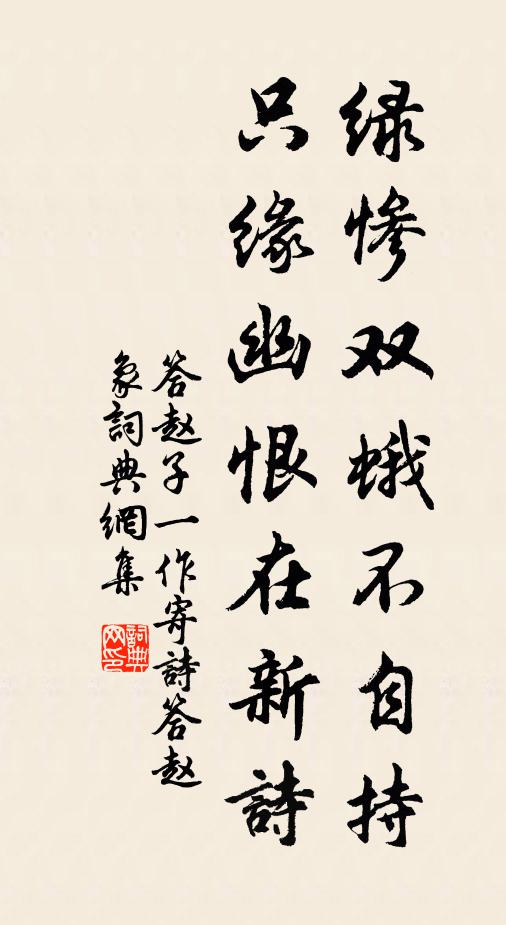 绿惨双蛾不自持
只缘幽恨在新詩
答赵子一作寄詩答赵
象詞典網集
詞典网印